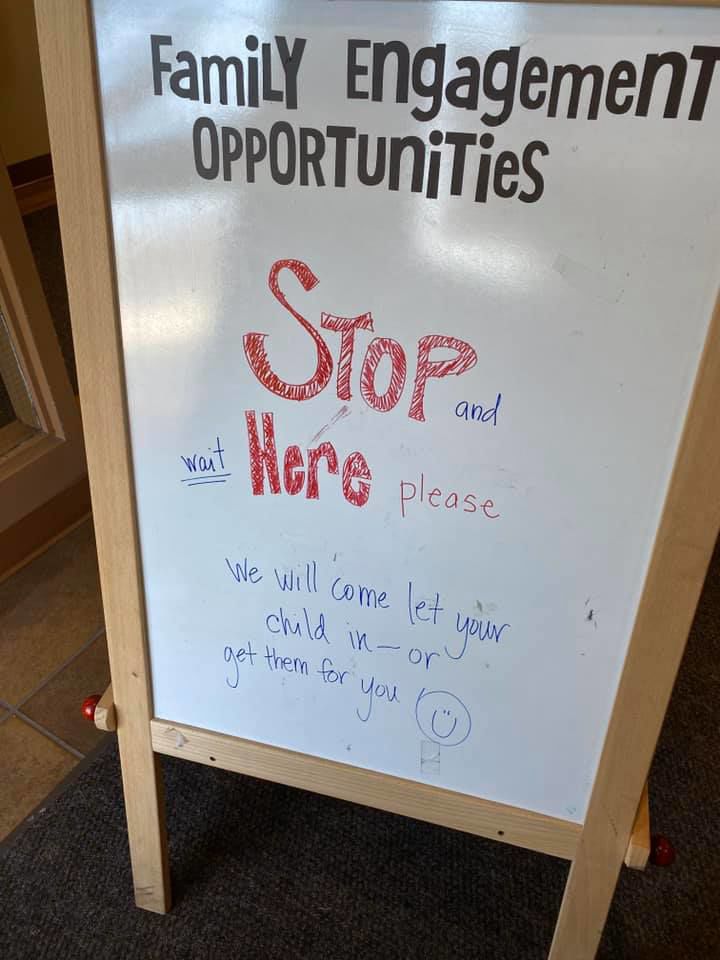 FamiLY EngagemenT
OPPORTuniTieS
STOP and
wait Here please
We will come let your
child in – or
get them for you